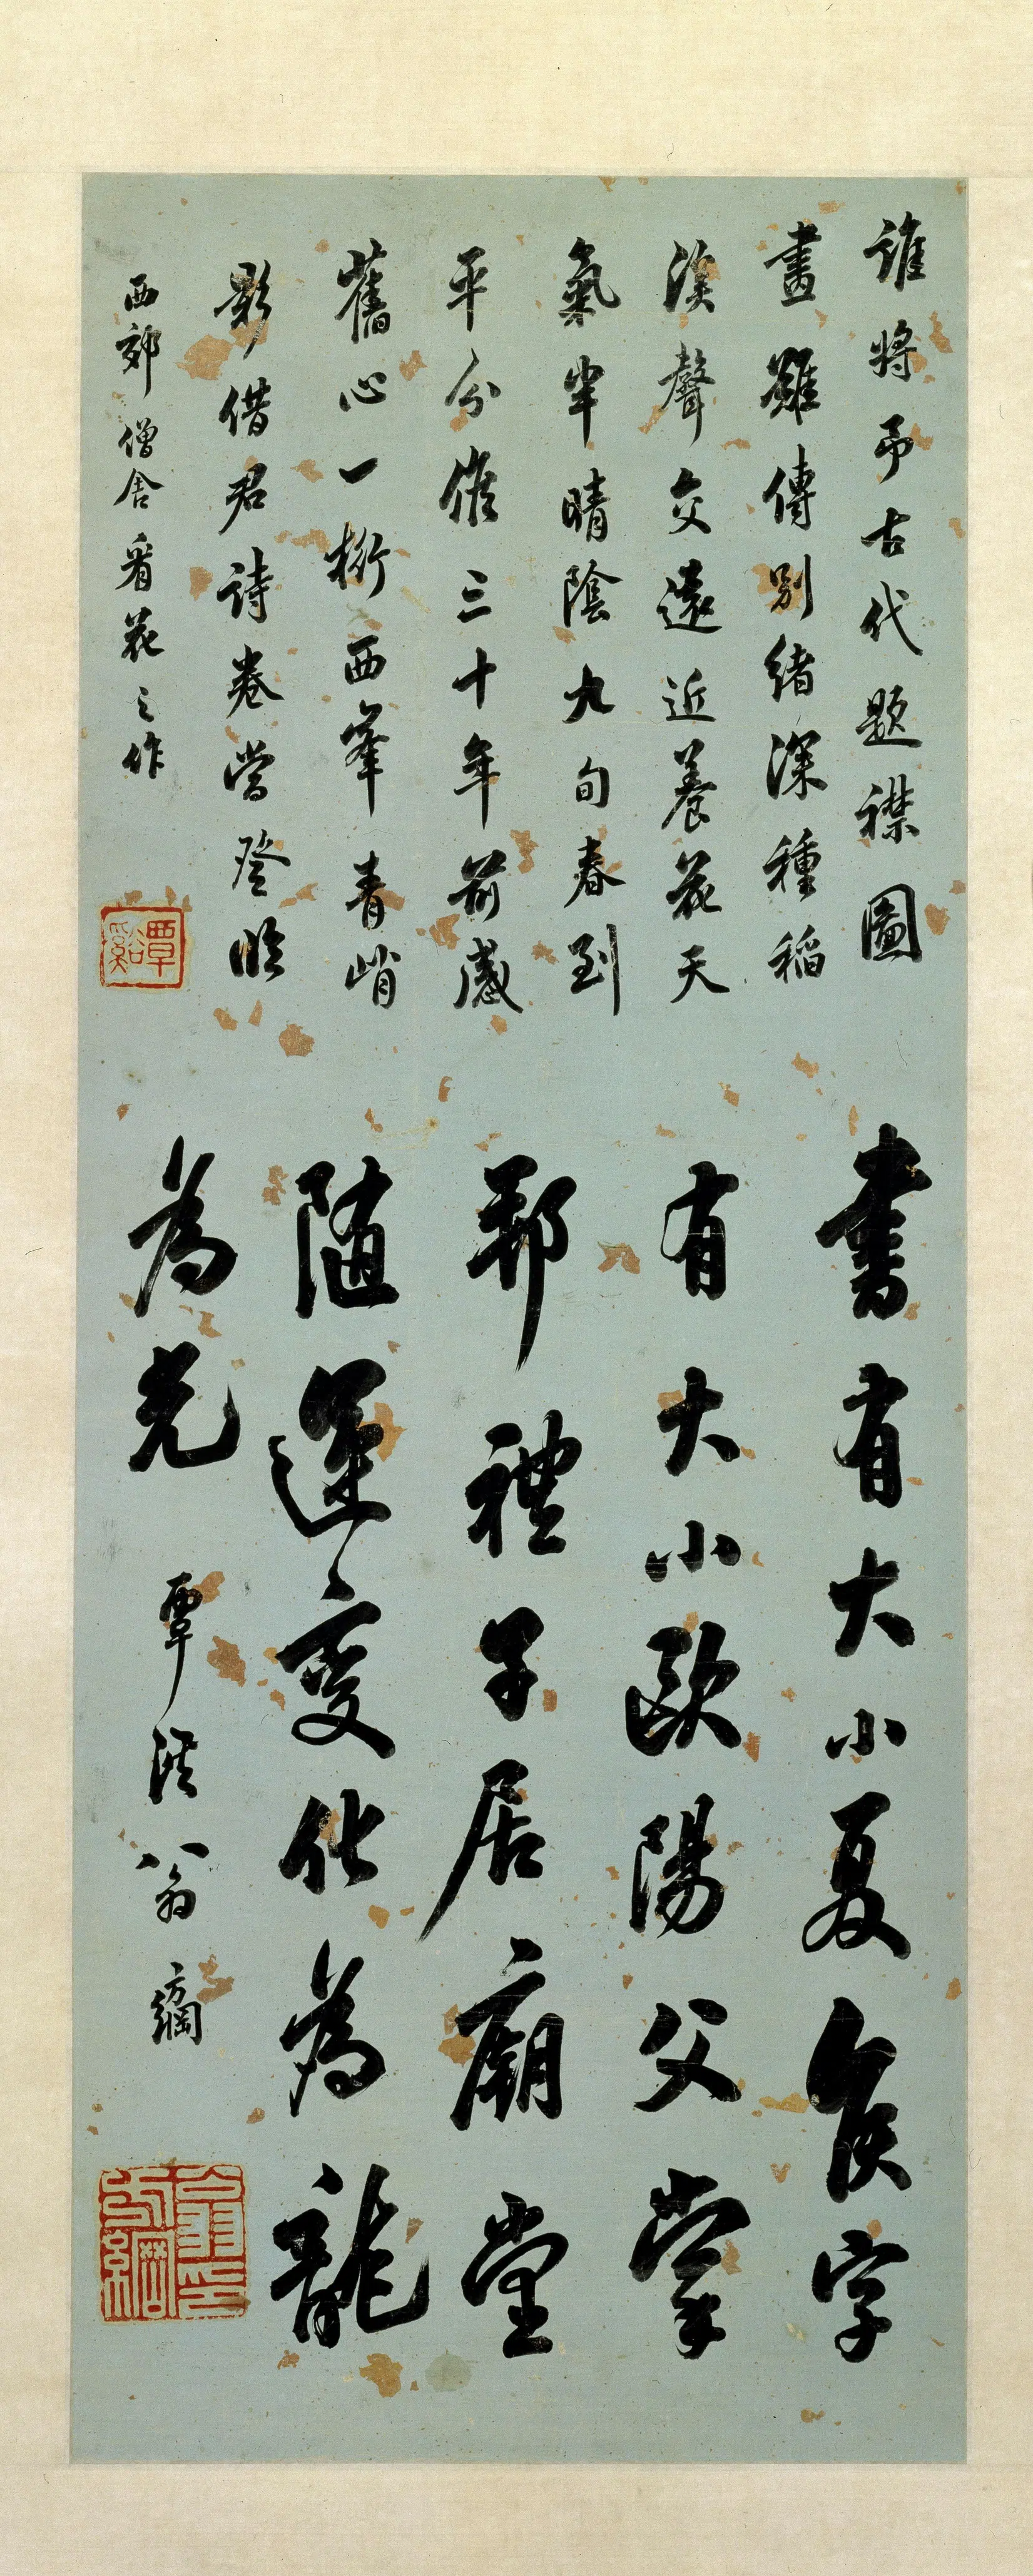 誰將弔古代題襟圖
畫難傳別緒深種稻
溪聲交遠近養花天
氣半晴陰九旬春到
平分候三十年前感
舊心一桁西峯青峭
影借君詩卷當登臨
西郊僧舍看花之作
覃谿
書有大小夏侯字
有大小歐陽父掌
邦禮子居廟堂
隨運變化為龍
為光
覃溪翁方綱
翁方綱印